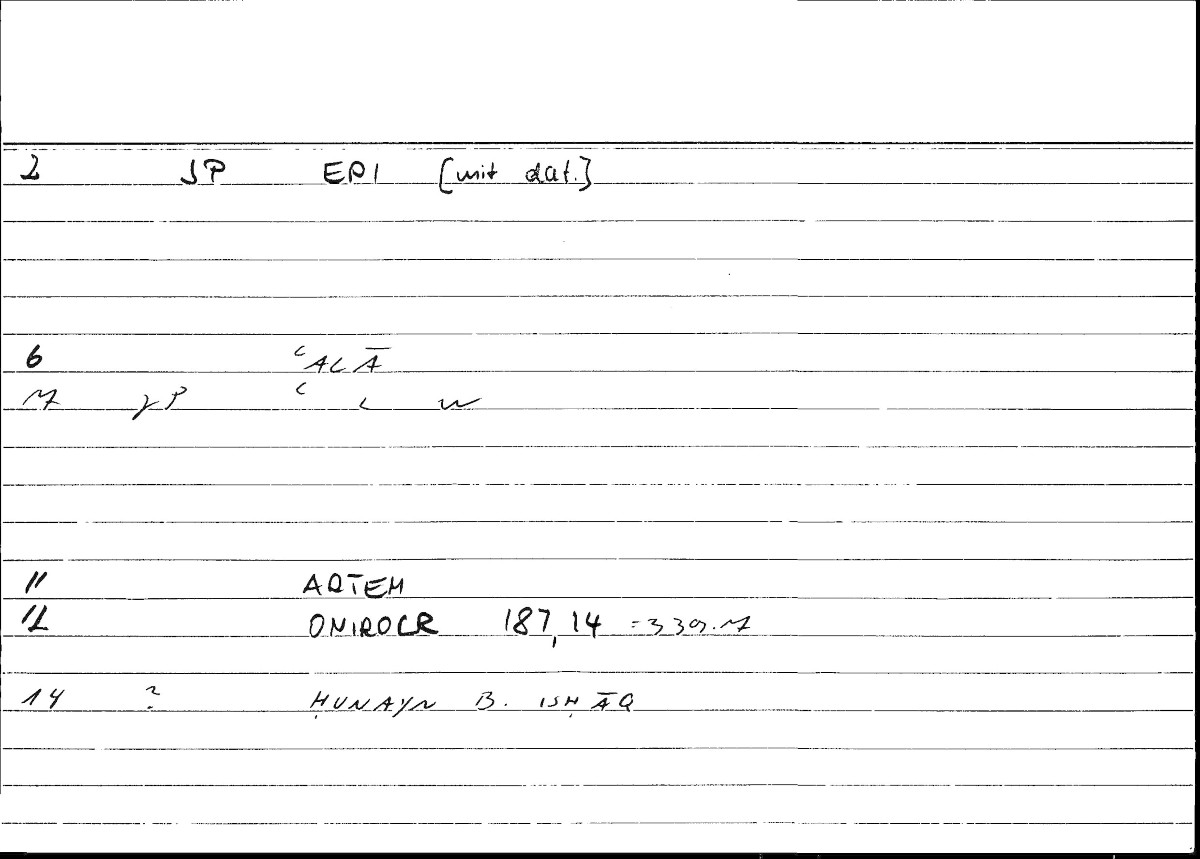 2 JP EPI [mit dat.]
6 ʿALĀ
7 JP ʿ L W
11 ARTEM
12 ONIROCR 187,14 =339.7
14 ? ḤUNAYN B. ISḤĀQ